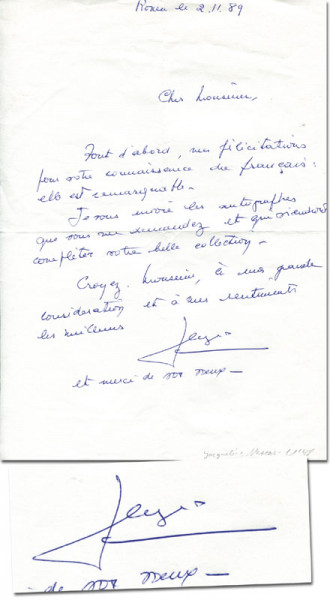 le 2.11.89
Cher Monsieur,
Tout d'abord, mes félicitations
pour votre connaissance du français :
elle est remarquable -
Je vous envoie les autographes
que vous me demandez et qui viendront
compléter votre belle collection -
Croyez, Monsieur, à ma grande
considération et à mes sentiments
les meilleurs
et merci de vos voeux -
de vos voeux -